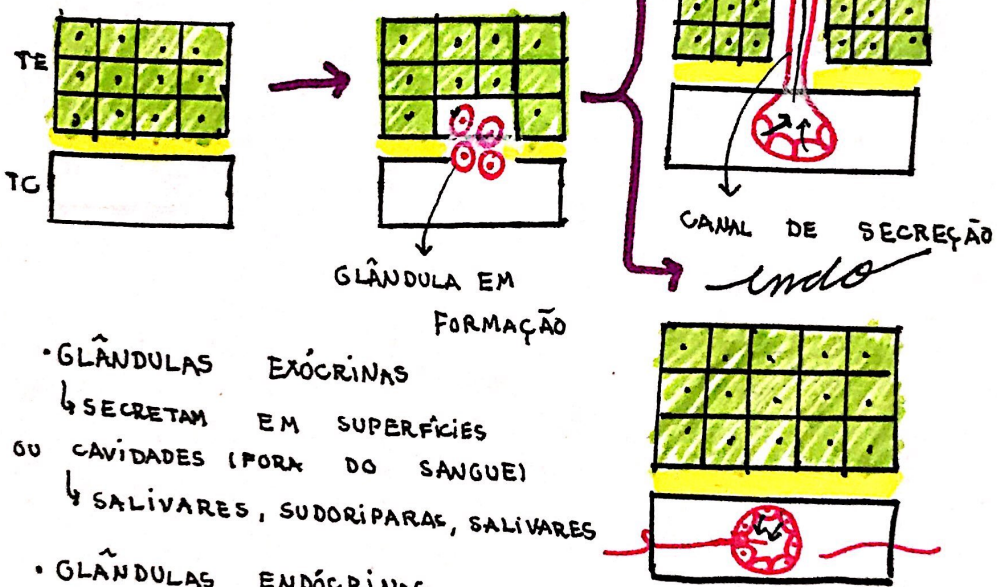 TE
TC
GLÂNDULA EM
FORMAÇÃO
CANAL DE SECREÇÃO
endo
• GLÂNDULAS EXÓCRINAS
↳ SECRETAM EM SUPERFÍCIES
OU CAVIDADES (FORA DO SANGUE)
↳ SALIVARES, SUDORIPARAS, SALIVARES
• GLÂNDULAS ENDÓCRINAS